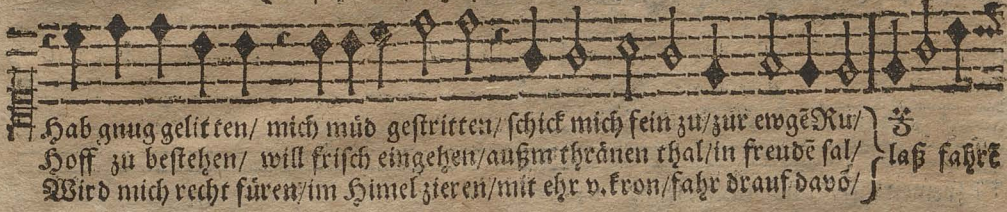 Hab gnug gelitten/ mich müd gestritten/ schick mich fein zu/zur ewgē Ru/
Hoff zu bestehen/ will frisch eingehen/außm thränen thal/in freudē sal/ laß fahrē
Wird mich recht füren/im Himel zieren/mit ehr v. kron/fahr drauf davō/